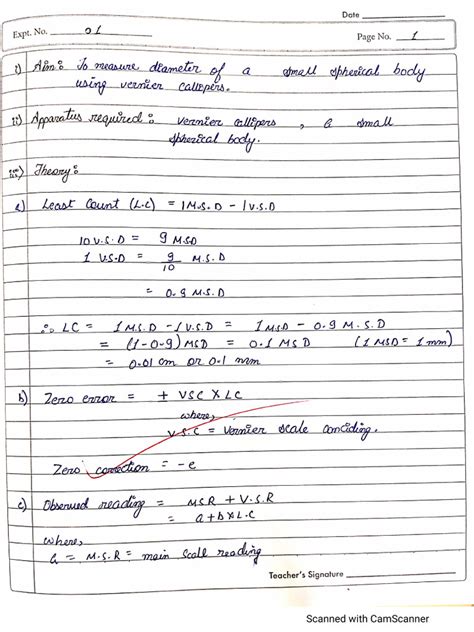 Date
Expt. No. 01
Page No. 1
i) Aim: To measure diameter of a small spherical body
using vernier callipers.
ii) Apparatus required: vernier callipers, a small
spherical body.
iii) Theory:
a) Least Count (L.C) = 1 M.S.D - 1 V.S.D
10 V.S.D = 9 MSD
1 V.S.D = 9/10 M.S.D
= 0.9 M.S.D
∴ LC = 1 M.S.D - 1 V.S.D = 1 MSD - 0.9 M.S.D
= (1-0.9) MSD = 0.1 MSD (1 MSD = 1 mm)
= 0.01 cm or 0.1 mm
b) Zero error = ± VSC X LC
where,
V.S.C = Vernier scale conciding.
Zero correction = -e
c) Observed reading = MSR + V.S.R
= a+b×L.C
where,
a = M.S.R = main scall reading
Teacher's Signature
Scanned with CamScanner